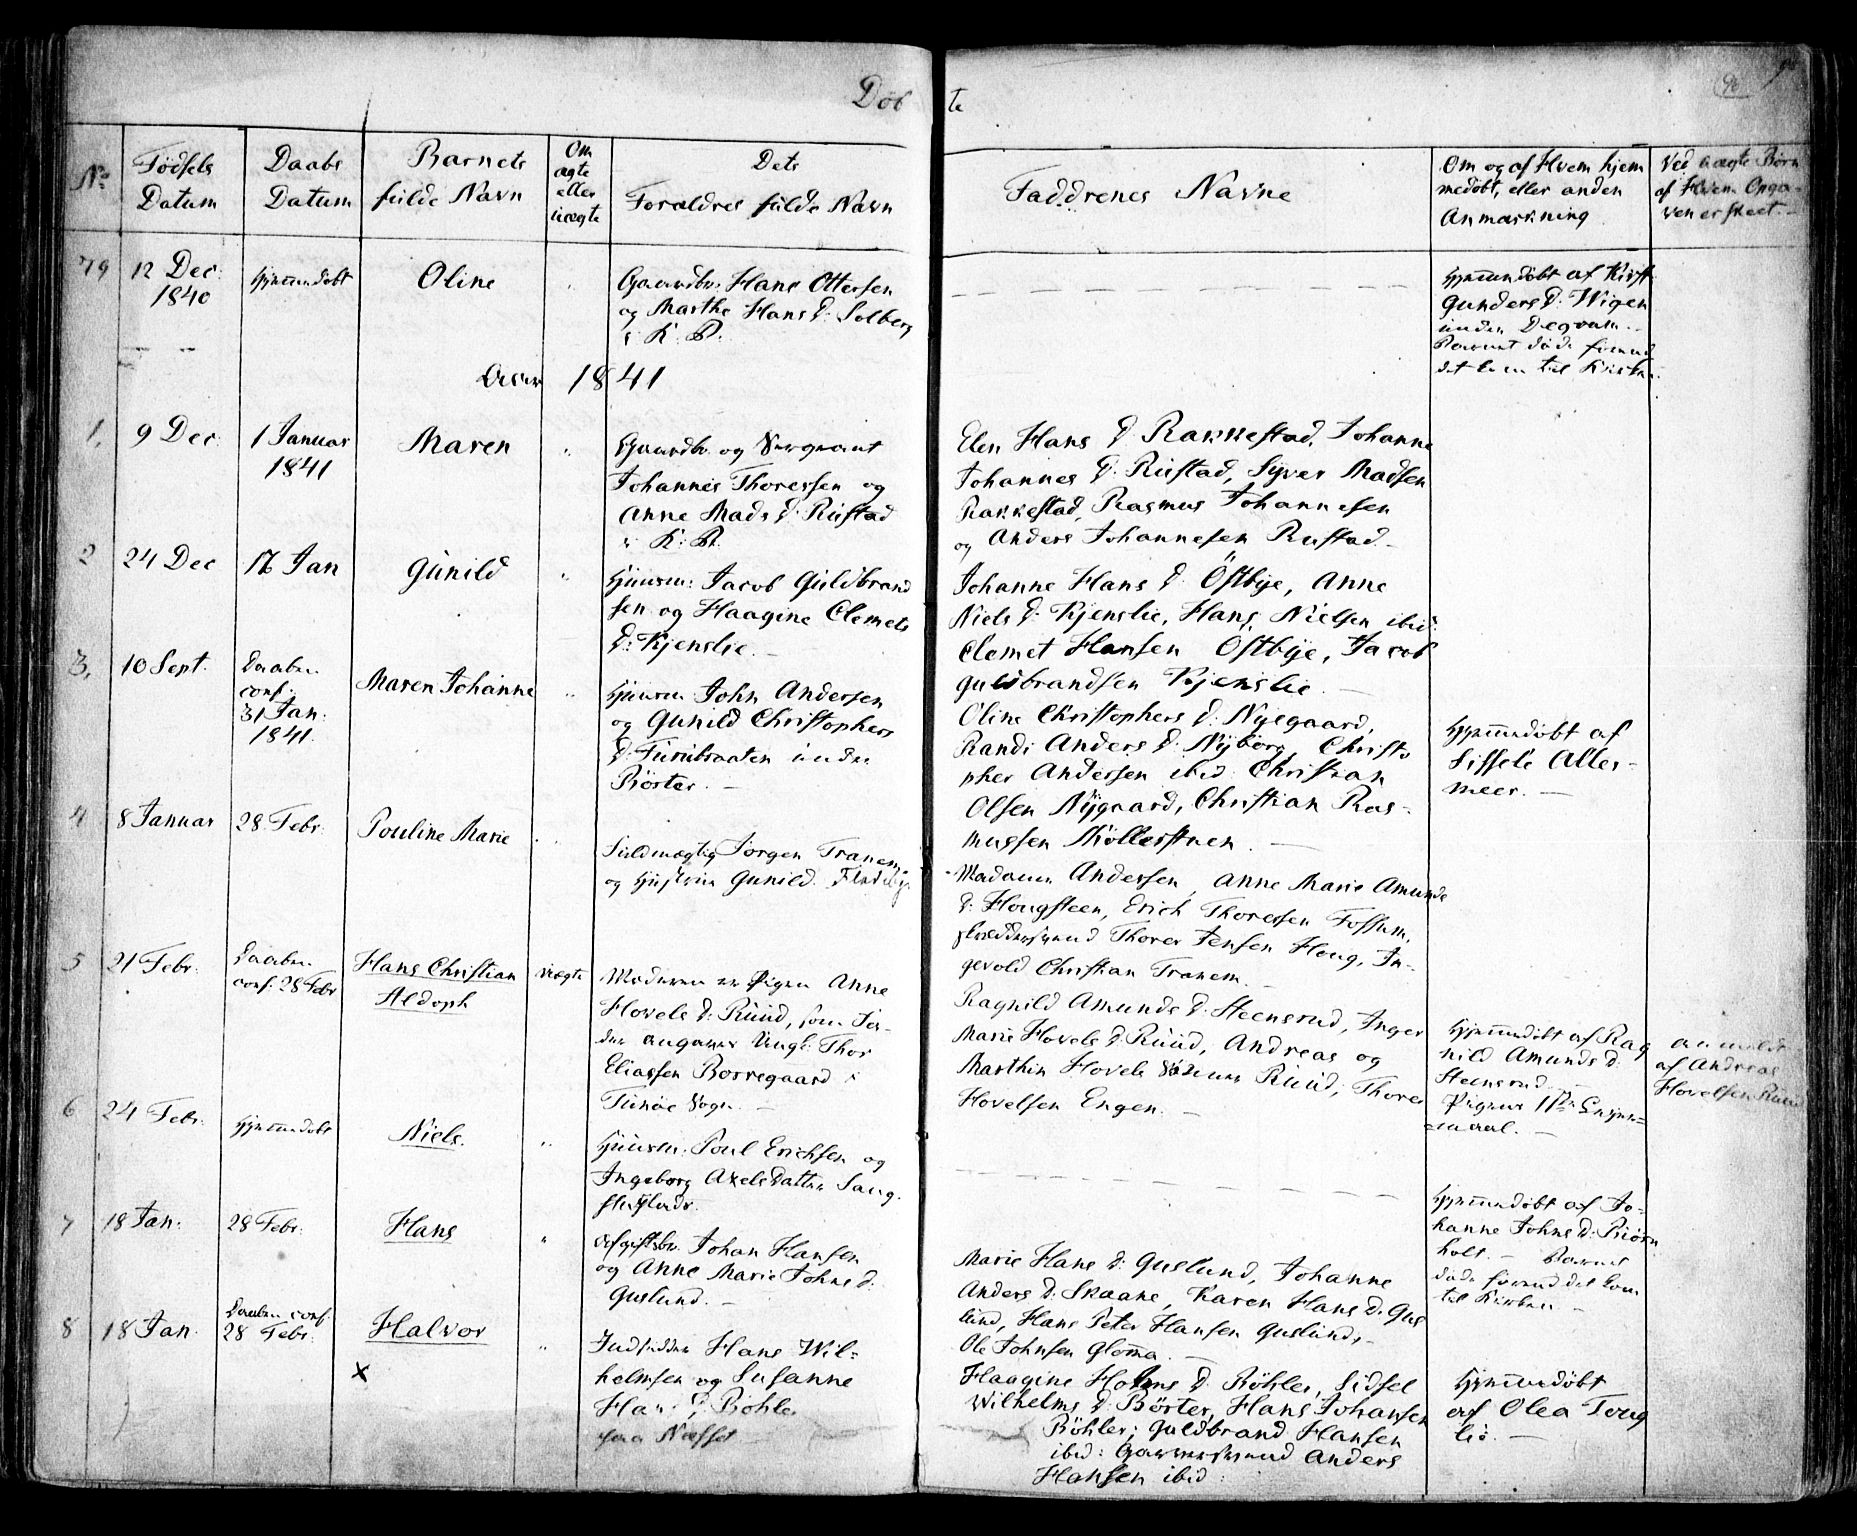 Døb te
No
Fødsels
Datum
Daabs
Datum
Barnets
fulde Navn
Om
ægte
eller
uægte
Dets
Forældres fulde Navn
Faddrenes Navne
Om og af Hvem hjem
medøbt, eller anden
Anmærkning
Ved uægte Børn
af Hvem Opga-
ven er skeet.-
79
12 Dec:
1840
hjemmedøbt
Oline
Gaardbr. Hans Ottersen
og Marthe Hans d: Solberg
i K: B.
hjemmedøbt af Kirst
Gunders d: Wigen
under Degrum.-
Barnet døde forend
det kom til Kirken.
1841
1.
9 Dec:
1 Januar
1841
Maren
Gaardbr. og Sergeant
Johannes Thoressen og
Anne Mads d: Rustad
i K: B.
Elen Hans d Rakkestad, Johanne
Johannes d: Rustad, Syver Madsen
Rakkestad, Rasmus Johannesen
og Anders Johannesen Rustad.-
2
24 Dec
17 Jan
Gunild
Huusm: Jacob Guldbrand
sen og Haagine Clemets
d: Kjenslie.-
Johanne Hans d: Østbye, Anne
Niels d: Kjenslie, Hans Nielsen ibid:
Clemet Hansen Østbye, Jacob
Guldbrandsen Kjenslie.-
3.
10 Sept.
Daaben
conf:
31 Jan:
1841.
Maren Johanne
Huusm John Andersen
og Gunild Christophers
d: Furubraaten under
Børter.-
Oline Christophers d: Nygaard,
Randi Anders d: Nyborg, Christo
pher Andersen ibid: Christian
Olsen Nygaard, Christian Ras-
mussen Møllerstuen.-
hjemmedøbt af
Sissele Aller-
meer.-
4
8 Januar
28 Febr:
Pouline Marie
Fuldmægtig Jørgen Tranem
og Hustrue Gunild. Fladeby.
Madam Andersen, Anne Marie Amunds
d: Hougsteen, Erich Thoressen Fossum,
skreddersvend Thorer Jensen Houg, In-
gevold Christian Tranem.-
5
21 Febr:
Daaben
conf: 28 Febr
Hans Christian
Aldoph
uægte
Moderen er Pigen Anne
Hovels d: Ruud, som Fa-
der angives Ungk: Thor
Eliassen Borregaard i
Tunøe Sogn.-
Ragnild Amunds d: Steensrud, Inger
Marie Hovels d: Ruud, Andreas og
Marthin Hovels Sønner Ruud, Thorer
Hovelsen Engen.-
hjemmedøbt af Rag
nild Amunds d:
Steensrud.-
Pigens 1ste Leyer-
maal.-
anmeldt
af Andreas
Hovelsen Ruud
6
24 Febr:
hjemmedøbt
Niels.
Huusm: Poul Erichsen og
Ingeborg Axels Datter
hjemmedøbt af Jo-
hanne Johns d: Biørn
holt.- Barnet
døde forend det kom
til Kirken-
7
18 Jan:
28 Febr:
Hans
Johan Hansen
og Anne Marie Johns d:
Guslund.-
Marie Hans d: Guslund, Johanne
Anders d: Skaane, Karen Hans d: Gus
lund, Hans Peter Hansen Guslund,-
Ole Johnsen Glomma.-
8
18 Jan.
Daaben conf.
28 Febr:
Halvor
x
Indsidder Hans Wil-
helmsen og Susanne
Hans d Bøhler
paa Næsset-
Haagine Hovens d: Bøhler, Sidsel
Wilhelms d: Børter, Hans Johansen
Bøhler; Guldbrand Hansen
ibid: Garversvend Anders
Hansen ibid:
hjemmedøbt
af Olea Toug
lie.-